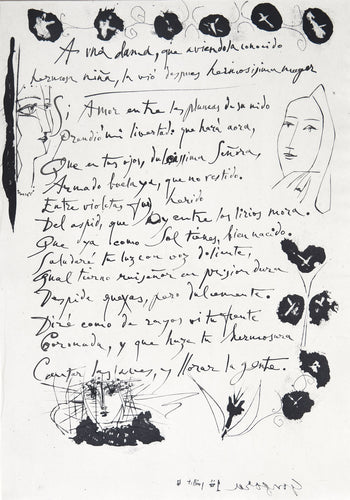 A una dama, que aviendola conocido
hermosa niña, la vió despues hermosissima muger
Si Amor entre las plumas de su nido
Prendió mi libertad que hará aora,
Que en tus ojos, dulcissima Señora,
Armado buela, ya que no vestido.
Entre violetas fuy herido
Del aspid, que oy entre los lirios mora.
Que ya como Sol tienes, bien nacido.
Saludaré tu luz con voz doliente,
Qual tierno ruiseñor en prision dura
Despide quexas, pero dulcemente.
Diré como de rayos vi tu frente
Coronada, y que haze tu hermosura
Cantar las aves, y llorar la gente.
Gongora